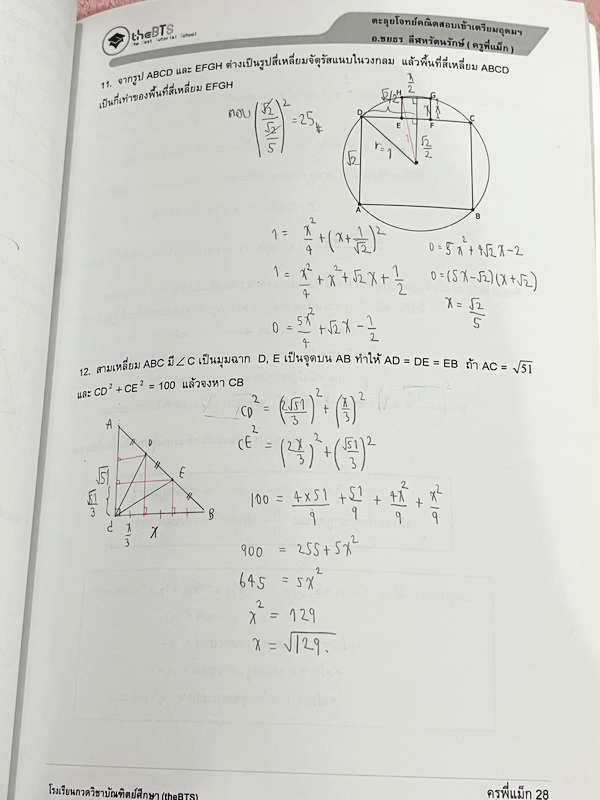 theBTS
The Best Tutorial School
ตะลุยโจทย์คณิตสอบเข้าเตรียมอุดมฯ
อ.ชยธร ลีฬหรัตนรักษ์ ( ครูพี่แม็ก )
11. จากรูป ABCD และ EFGH ต่างเป็นรูปสี่เหลี่ยมจัตุรัสแนบในวงกลม แล้วพื้นที่สี่เหลี่ยม ABCD
เป็นกี่เท่าของพื้นที่สี่เหลี่ยม EFGH
ตอบ (√2/(√2/5))² = 25
x/2
√2/2 H G
D E F C
x
√2 r=1 1 √2/2
A B
1 = x²/4 + (x + 1/√2)²
1 = x²/4 + x² + √2x + 1/2
0 = 5x²/4 + √2x − 1/2
0 = 5x² + 4√2x − 2
0 = (5x − √2)(x + √2)
x = √2/5
12. สามเหลี่ยม ABC มี ∠C เป็นมุมฉาก D, E เป็นจุดบน AB ทำให้ AD = DE = EB ถ้า AC = √51
และ CD² + CE² = 100 แล้วจงหา CB
A
D
E
√51
√51/3
C B
x/3 x
CD² = (2√51/3)² + (x/3)²
CE² = (2x/3)² + (√51/3)²
100 = 4×51/9 + 51/9 + 4x²/9 + x²/9
900 = 255 + 5x²
645 = 5x²
x² = 129
x = √129.
โรงเรียนกวดวิชาบัณฑิตย์ศึกษา (theBTS)
ครูพี่แม็ก 28